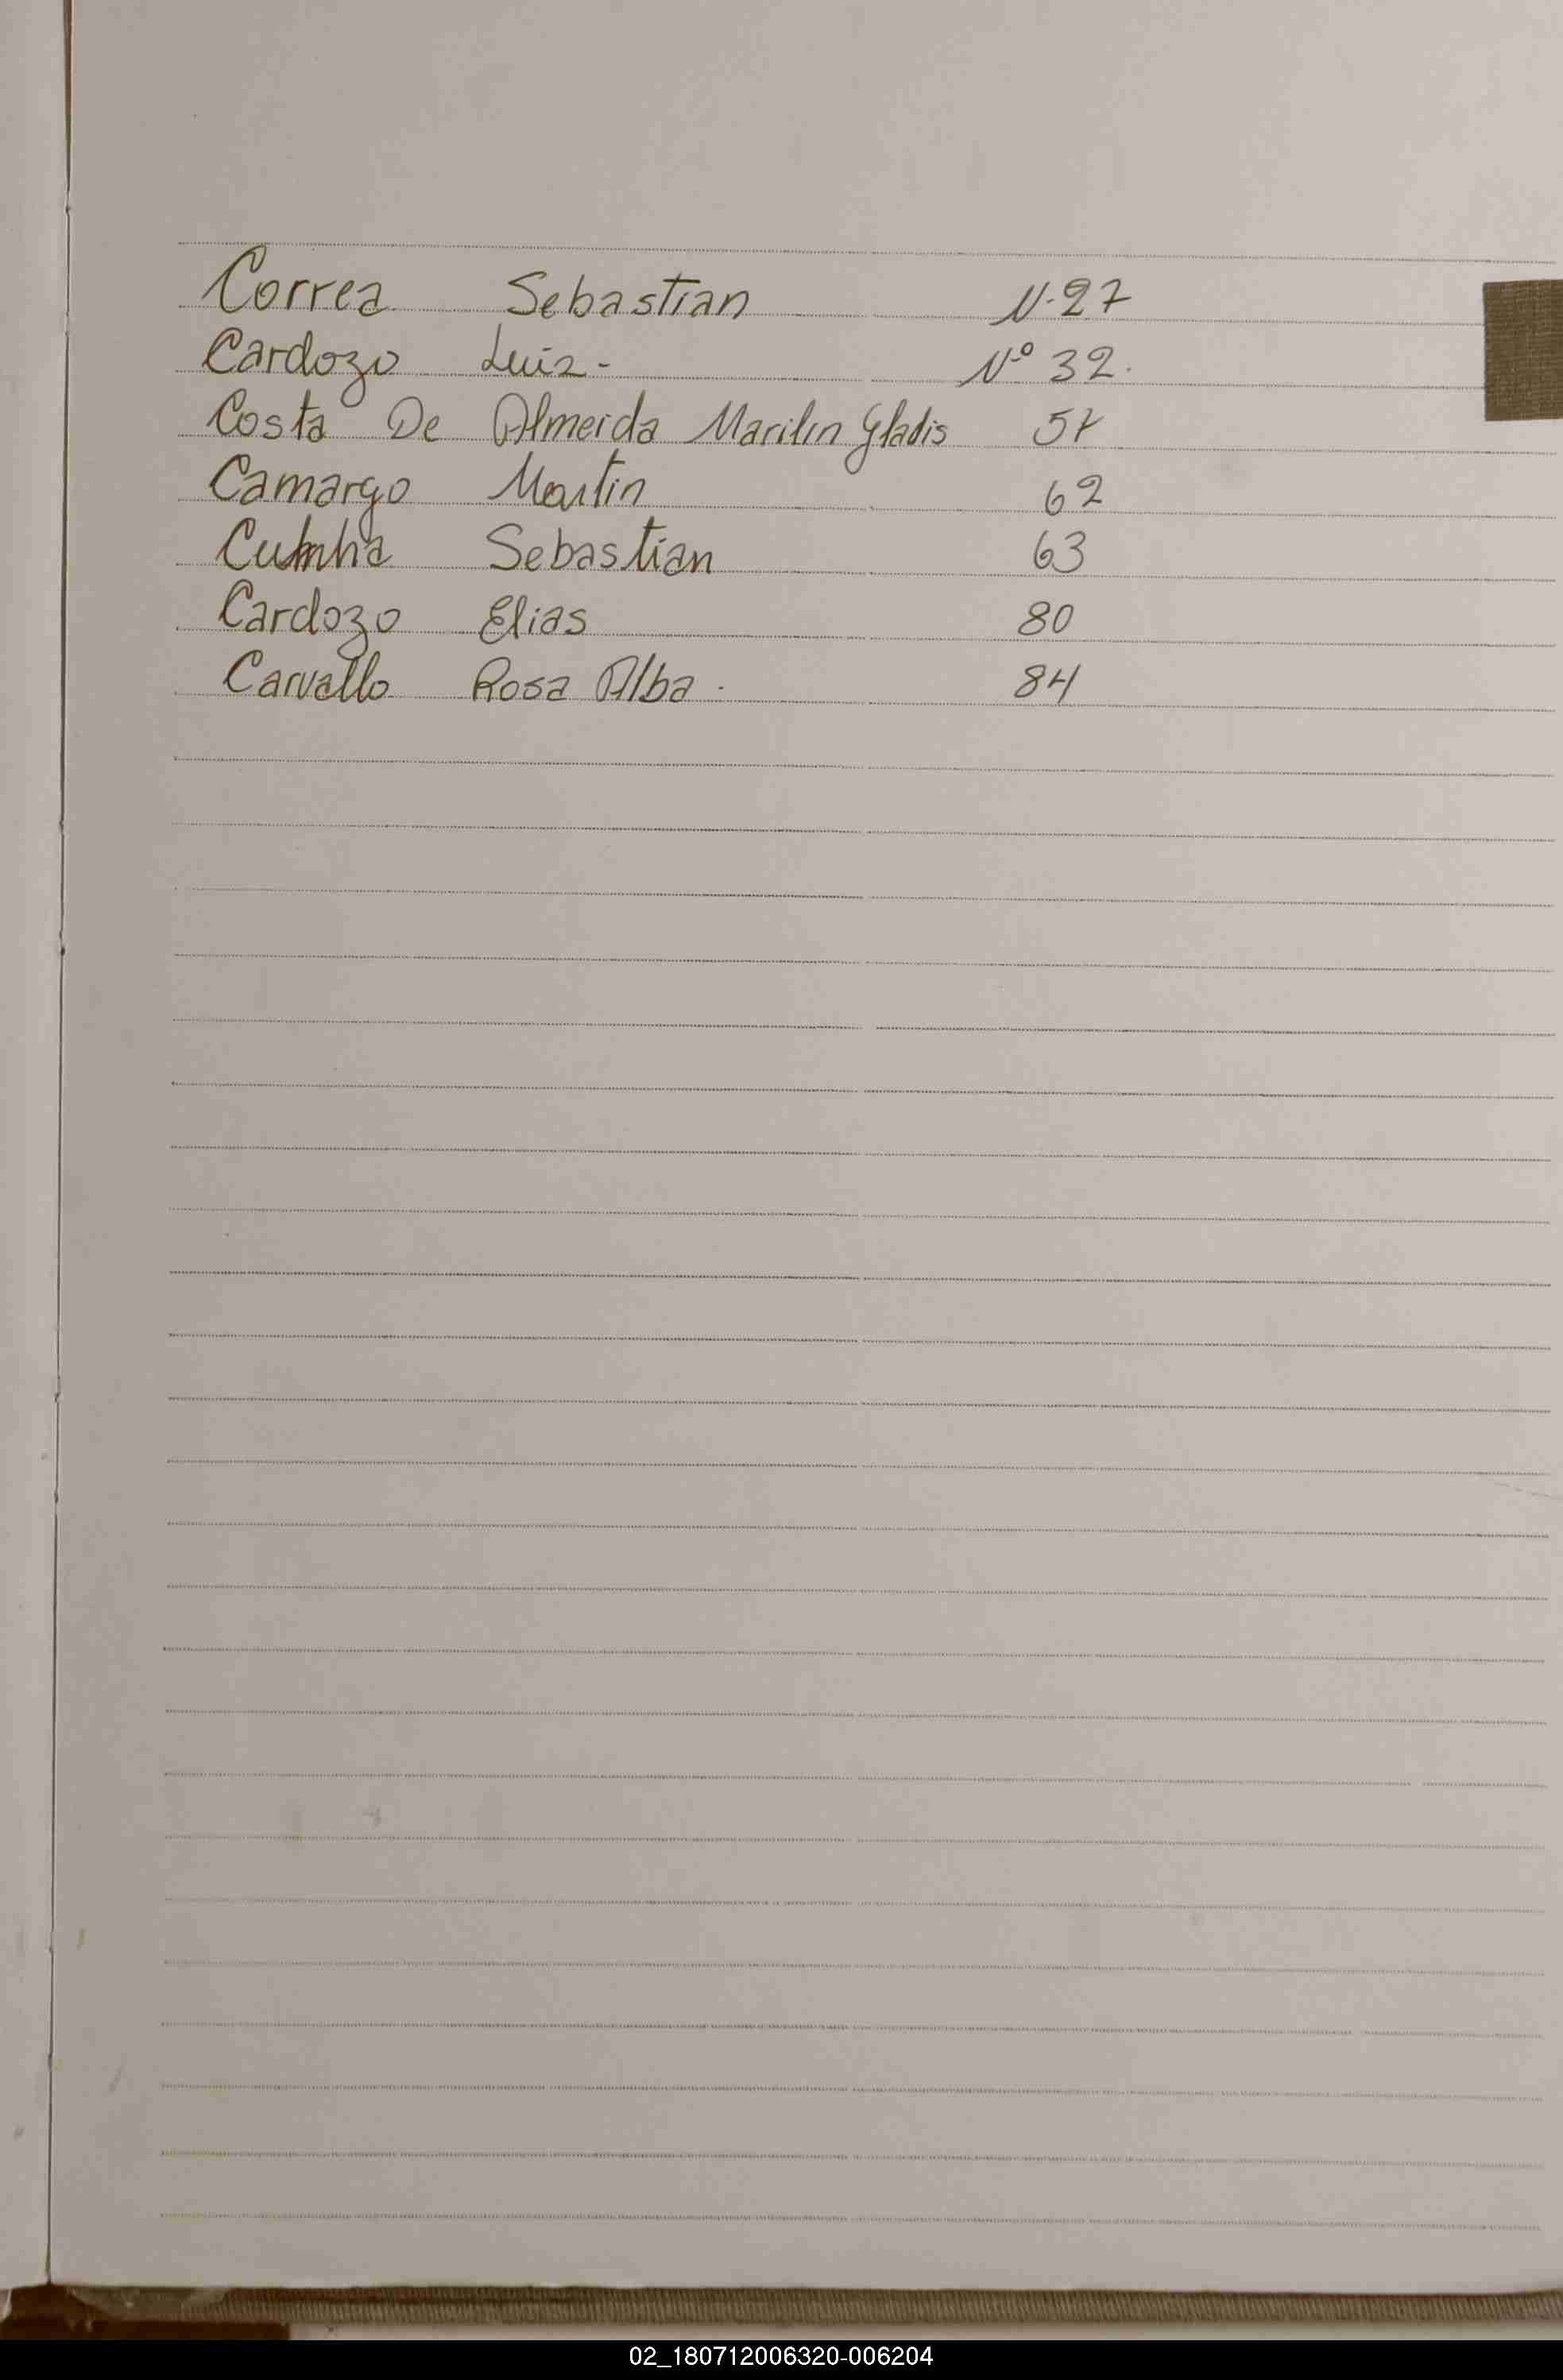 Correa Sebastian N. 27
Cardozo Luiz - Nº 32.
Costa De Almeida Marilin Gladis 57
Camargo Martin 62
Cunha Sebastian 63
Cardozo Elias 80
Carvallo Rosa Alba . 84
02_180712006320-006204